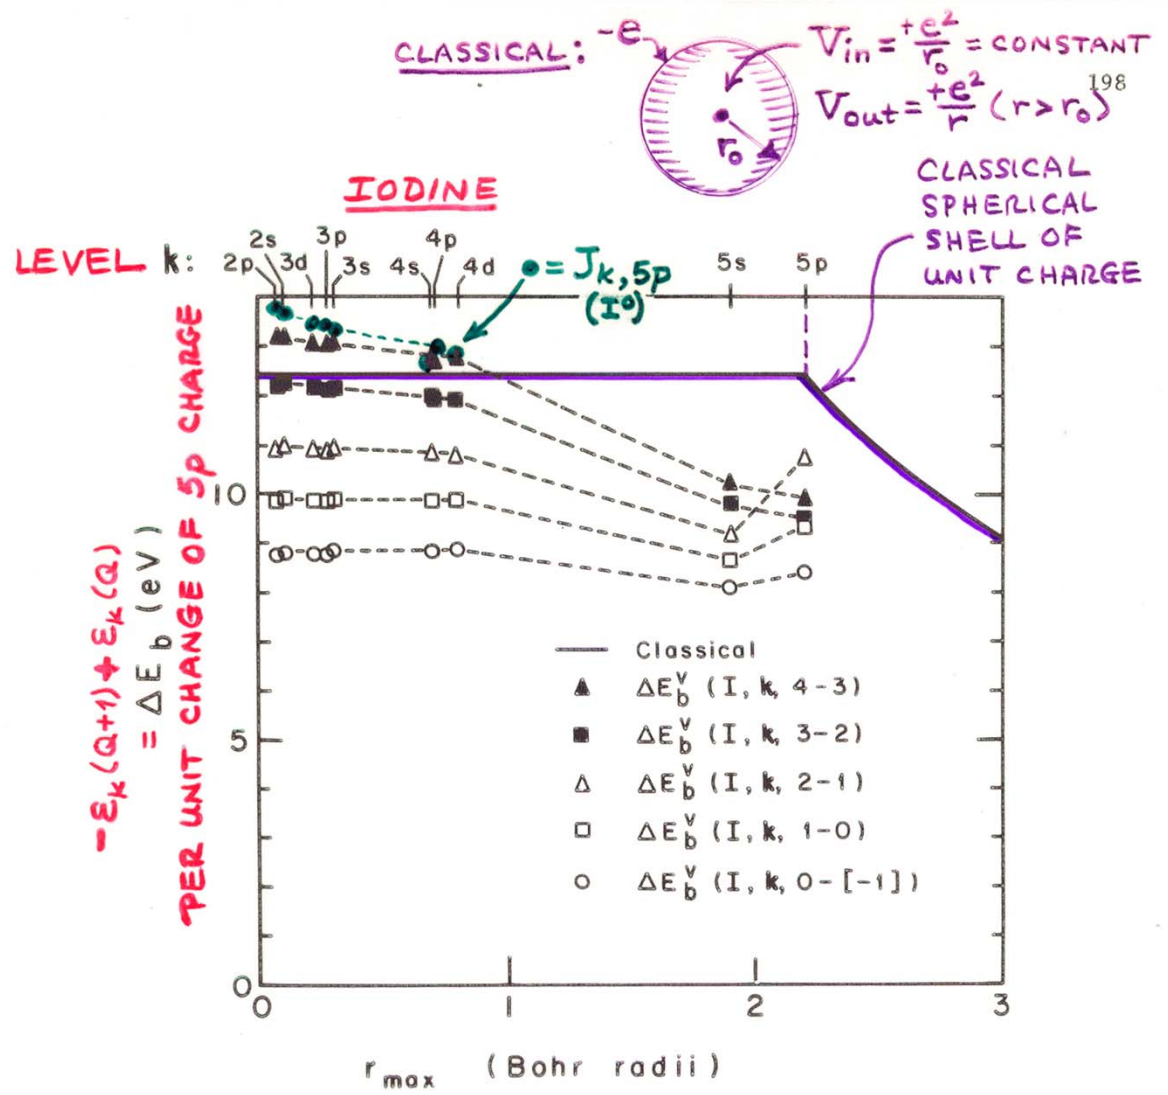 CLASSICAL: -e Vin = +e²/r₀ = CONSTANT
198
Vout = +e²/r (r > r₀)
r₀
CLASSICAL
SPHERICAL
SHELL OF
UNIT CHARGE
IODINE
LEVEL k: 2p 2s 3d 3p 3s 4s 4p 4d 5s 5p
● = Jk,5p
(I⁰)
-εk(Q+1) + εk(Q)
= ΔEb (eV)
PER UNIT CHANGE OF 5p CHARGE
10
5
0
Classical
▲ ΔEbᵛ (I, k, 4-3)
■ ΔEbᵛ (I, k, 3-2)
△ ΔEbᵛ (I, k, 2-1)
□ ΔEbᵛ (I, k, 1-0)
○ ΔEbᵛ (I, k, 0-[-1])
0 1 2 3
rmax (Bohr radii)